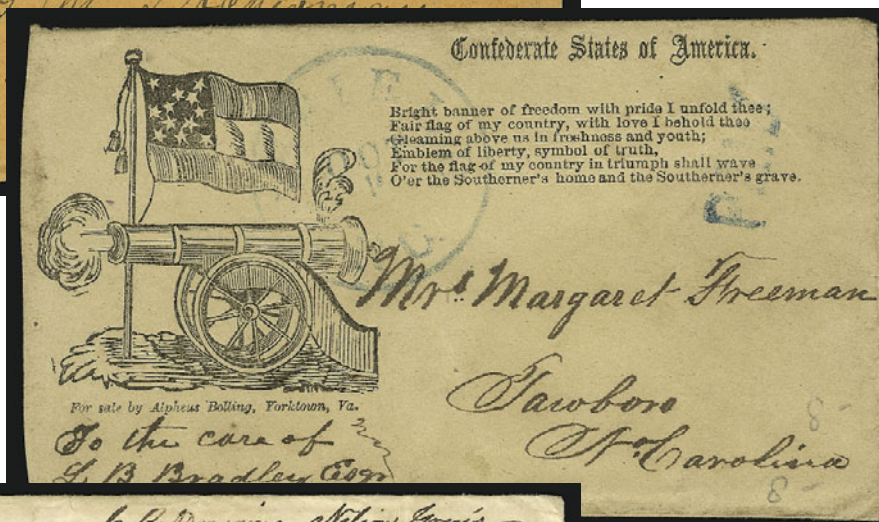 Confederate States of America.
Bright banner of freedom with pride I unfold thee;
Fair flag of my country, with love I behold thee
Gleaming above us in freshness and youth;
Emblem of liberty, symbol of truth,
For the flag of my country in triumph shall wave
O'er the Southerner's home and the Southerner's grave.
Mrs Margaret Freeman
Tawboro
No Carolina
For sale by Alpheus Bolling, Yorktown, Va.
To the care of
L B Bradley Esqr